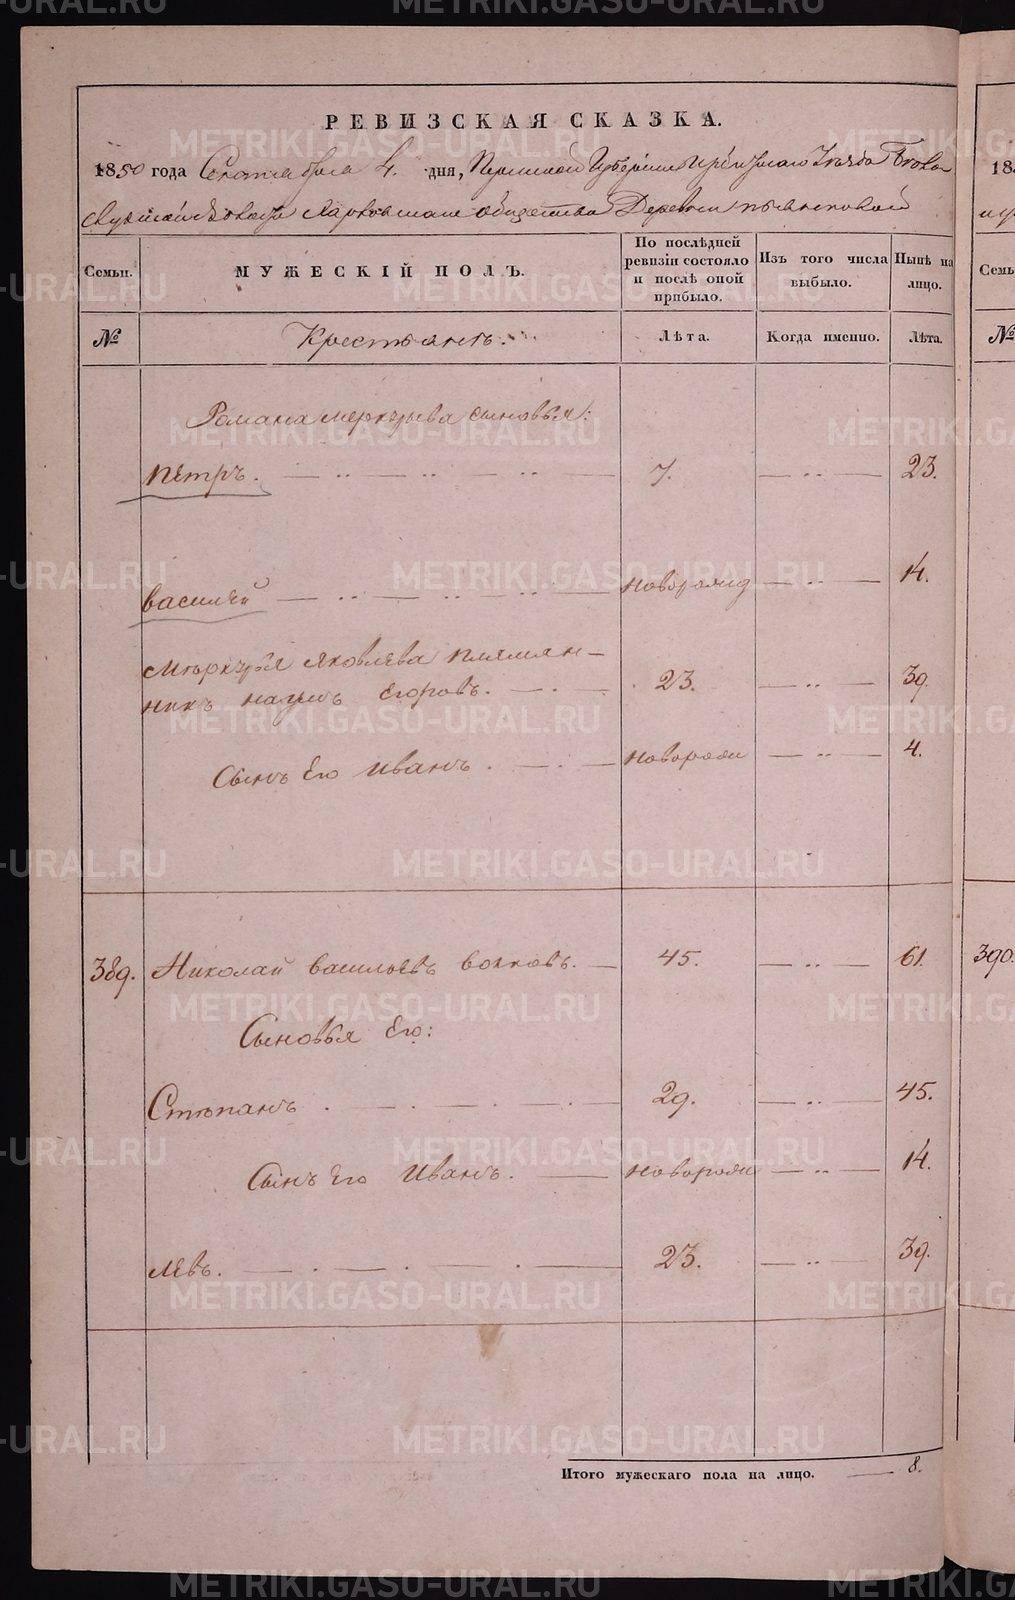 РЕВИЗСКАЯ СКАЗКА.
1850 года Сентября 4. дня, Пермской Губернии Ирбитскаго Уезда
общества Деревни
Семьи. МУЖЕСКІЙ ПОЛЪ. По послѣдней ревизіи состояло и послѣ оной прибыло. Изъ того числа выбыло. Нынѣ на лицо.
№ Крестьянъ. Лѣта. Когда именно. Лѣта.
Романа меркурьева сыновья:
пѣтръ. 7. 23.
василѣй новорожд 14.
Мѣркурья яковлева плѣмян-
никъ наумъ Егоровъ. 23. 39.
Сынъ Его иванъ. новорожд 4.
389. Николай васильевъ волковъ. 45. 61.
Сыновья Его:
Стѣпанъ 29. 45.
Сынъ Его Иванъ. новорожд 14.
лѣвъ. 23. 39.
Итого мужескаго пола на лицо. 8.
18
Семь
№
390.
METRIKI.GASO-URAL.RU